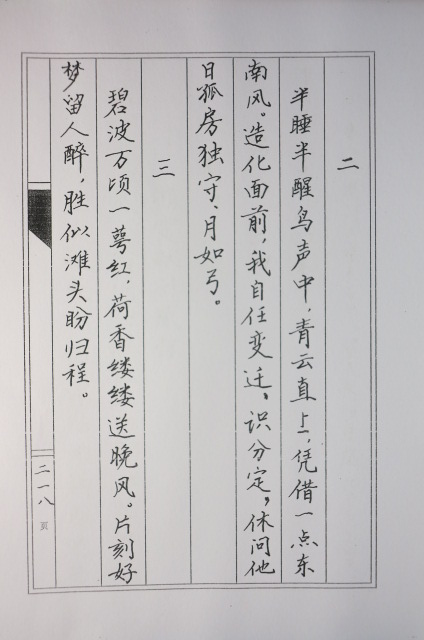 二
半睡半醒鸟声中，青云直上，凭借一点东
南风。造化面前，我自任变迁。识分定，休问他
日孤房独守、月如弓。
三
碧波万顷一萼红，荷香缕缕送晚风。片刻好
梦留人醉，胜似滩头盼归程。
二一八
页